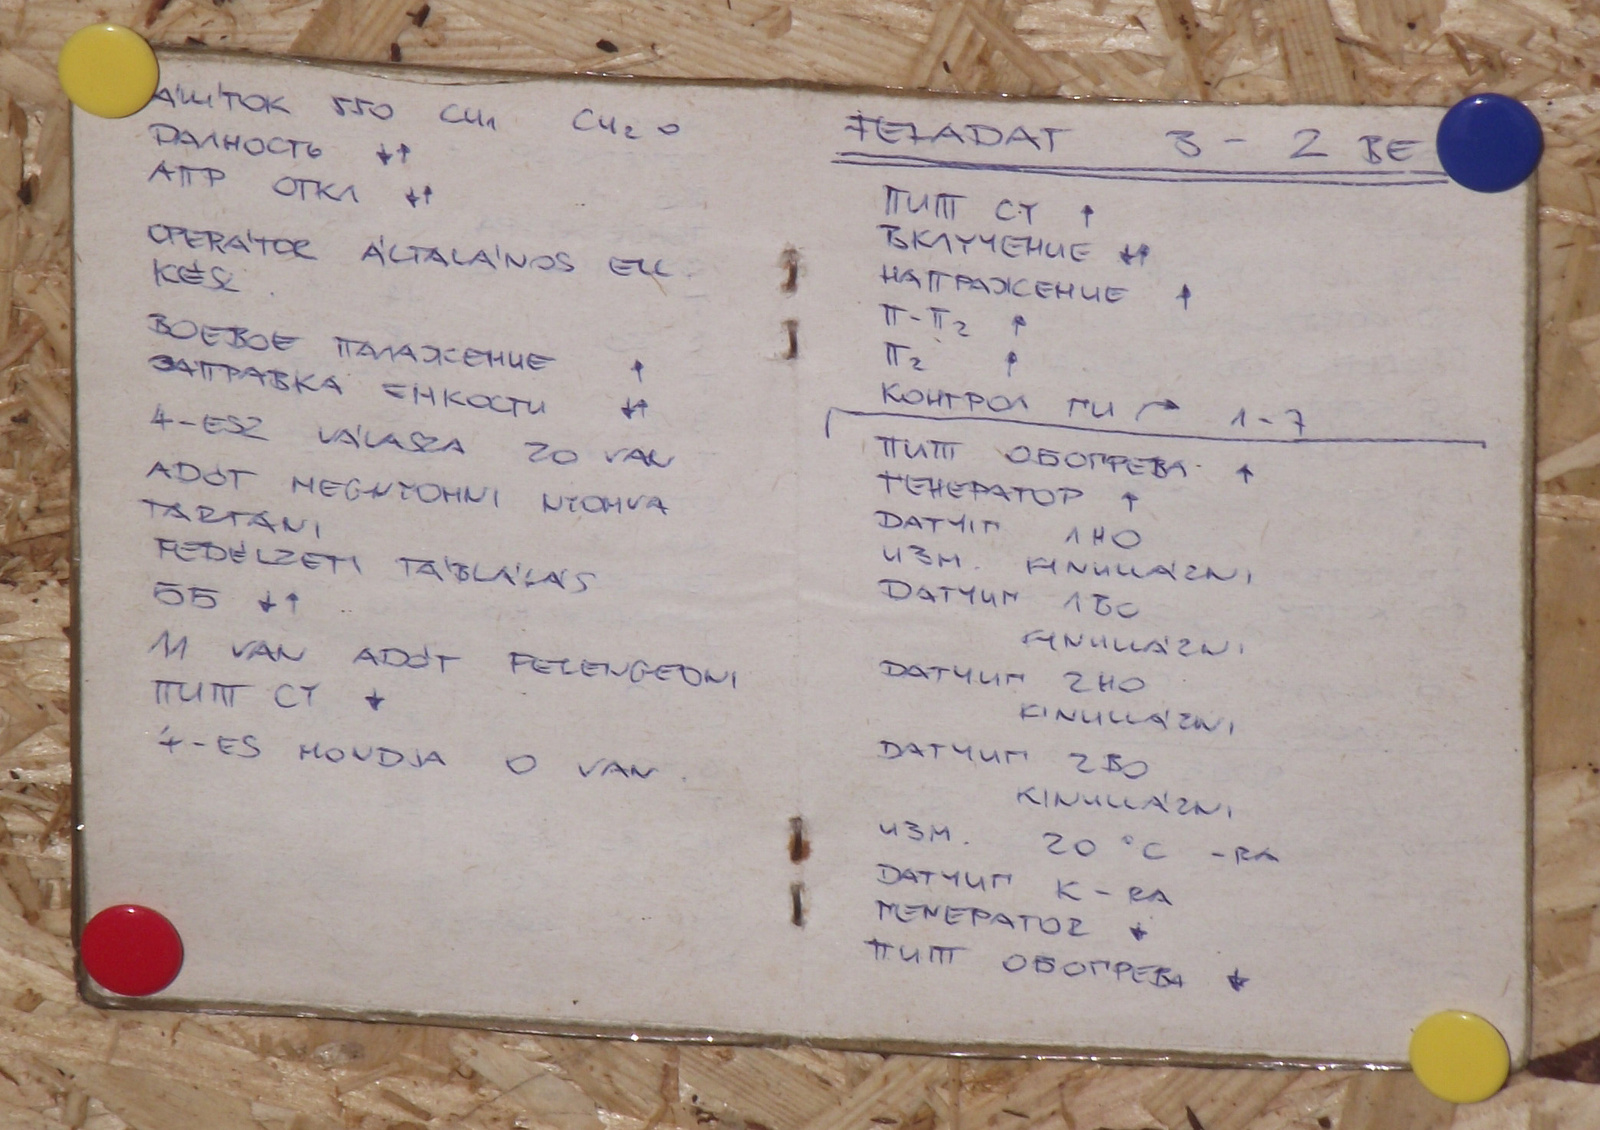 ÁLLÍTOK 550 CH1 CH2 0
ДАЛНОСТЬ ↓↑
АПР ОТКЛ ↓↑
OPERÁTOR ÁLTALÁNOS ELL.
KÉSZ.
БОЕВОЕ ПАЛАЖЕНИЕ ↑
ЗАПРАВКА ЕНКОСТИ ↓↑
4-ESZ VÁLASZA 20 VAN
ADÓT MEGNYOMNI NYOMVA
TARTANI
FEDÉLZETI TÁBLÁLÁS
ББ ↓↑
11 VAN ADÓT FELENGEDNI
ПИТ СТ ↓
4-ES MONDJA 0 VAN.
FELADAT 3 - 2 BE
ПИТ СТ ↑
ВКЛУЧЕНИЕ ↓↑
НАПРАЖЕНИЕ ↑
П-П2 ↑
П2 ↑
КОНТРОЛ ГИ → 1-7
ПИТ ОБОГРЕВА ↑
ГЕНЕРАТОР ↑
ДАТЧИГ 1НО
ИЗМ. KINULLÁZNI
ДАТЧИГ 1ВО
KINULLÁZNI
ДАТЧИГ 2НО
KINULLÁZNI
ДАТЧИГ 2ВО
KINULLÁZNI
ИЗМ. 20 °C -RA
ДАТЧИГ K-RA
ГЕNЕРАТОR ↓
ПИТ ОБОГРЕВА ↓